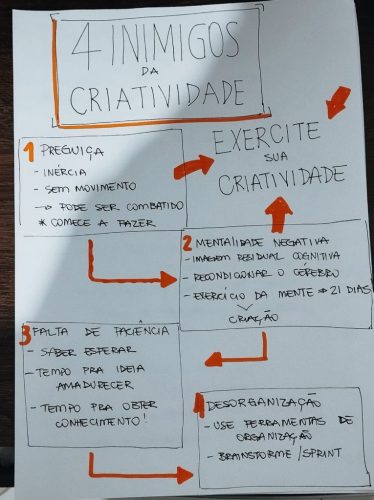 4 INIMIGOS
DA
CRIATIVIDADE
EXERCITE
SUA
CRIATIVIDADE
1 PREGUIÇA
- INÉRCIA
- SEM MOVIMENTO
→ PODE SER COMBATIDO
* COMECE A FAZER
2 MENTALIDADE NEGATIVA
- IMAGEM RESIDUAL COGNITIVA
- RECONDICIONAR O CÉREBRO
- EXERCÍCIO DA MENTE ⇒ 21 DIAS
CRIAÇÃO
3 FALTA DE PACIÊNCIA
- SABER ESPERAR
- TEMPO PRA IDEIA
AMADURECER
- TEMPO PRA OBTER
CONHECIMENTO!
4 DESORGANIZAÇÃO
- USE FERRAMENTAS DE
ORGANIZAÇÃO
- BRAINSTORME/SPRINT